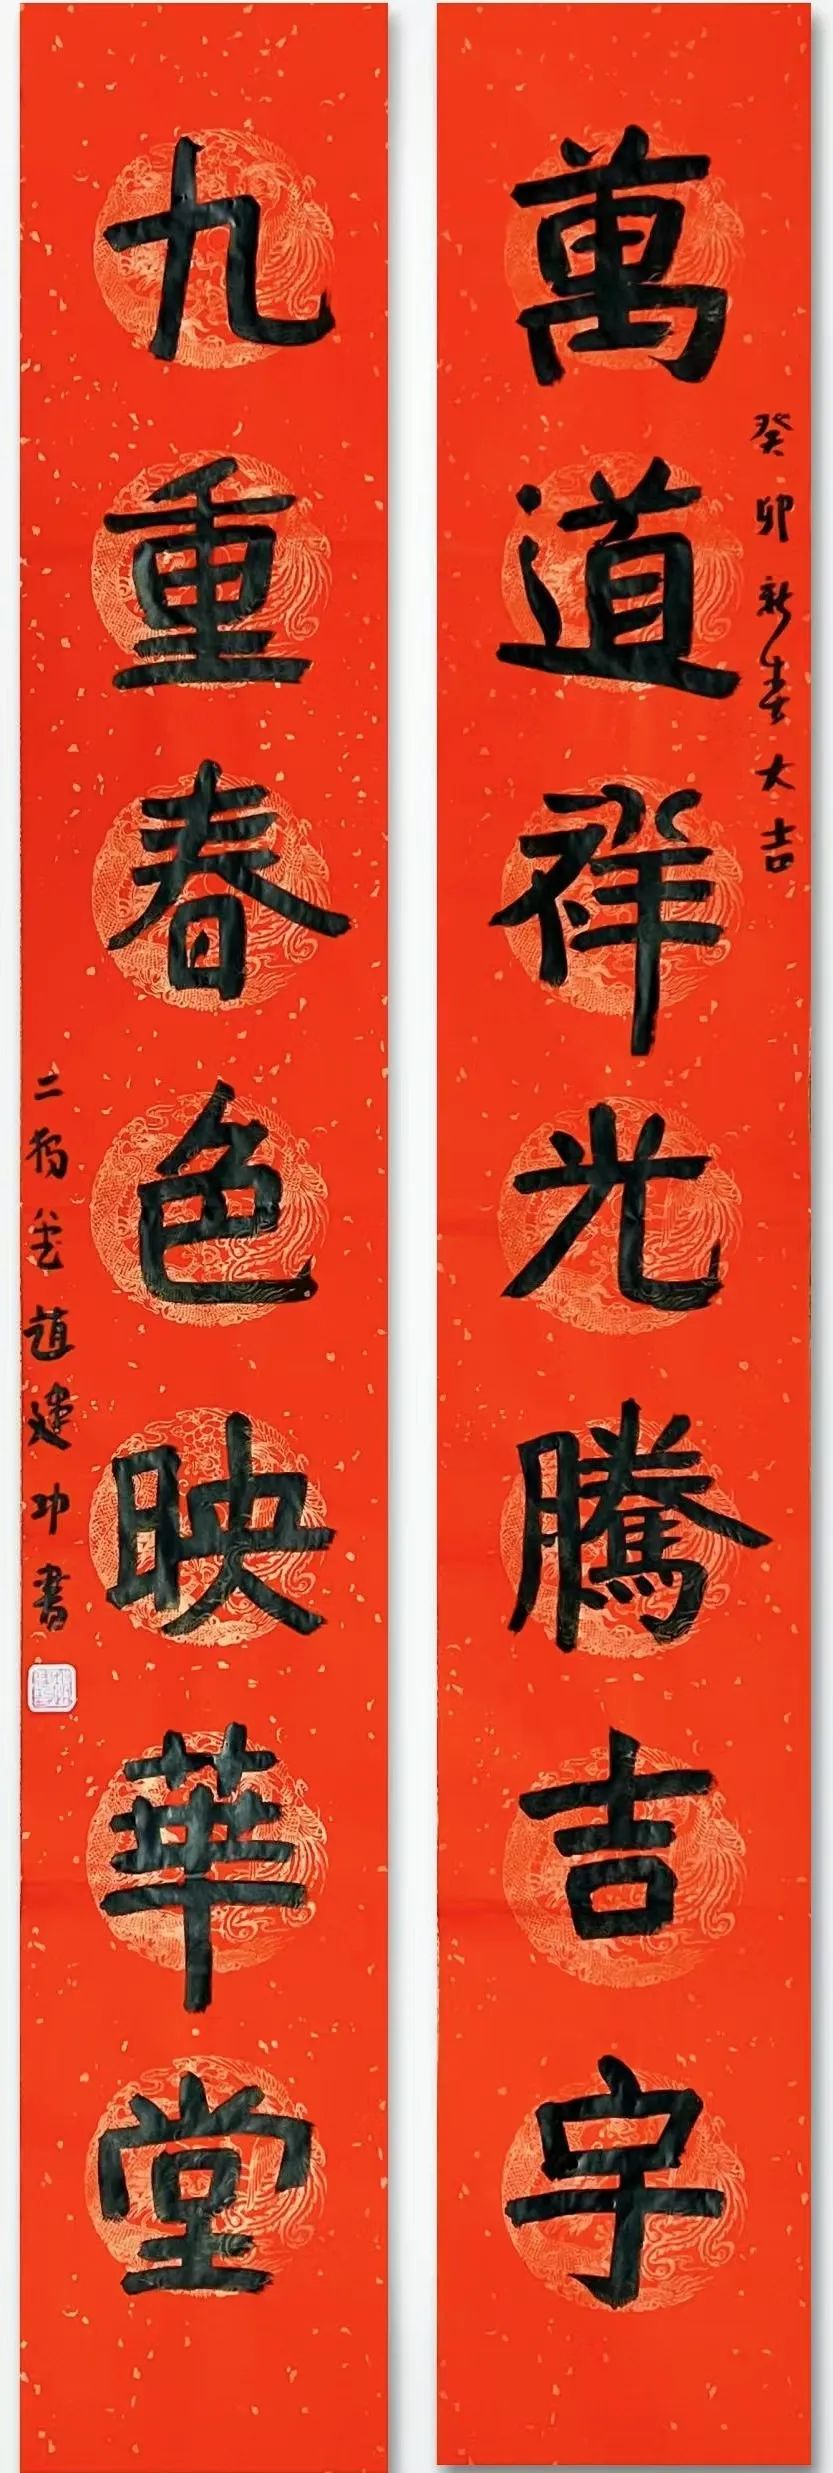 萬道祥光騰吉宇
癸卯新春大吉
九重春色映華堂
二為堂趙建功書